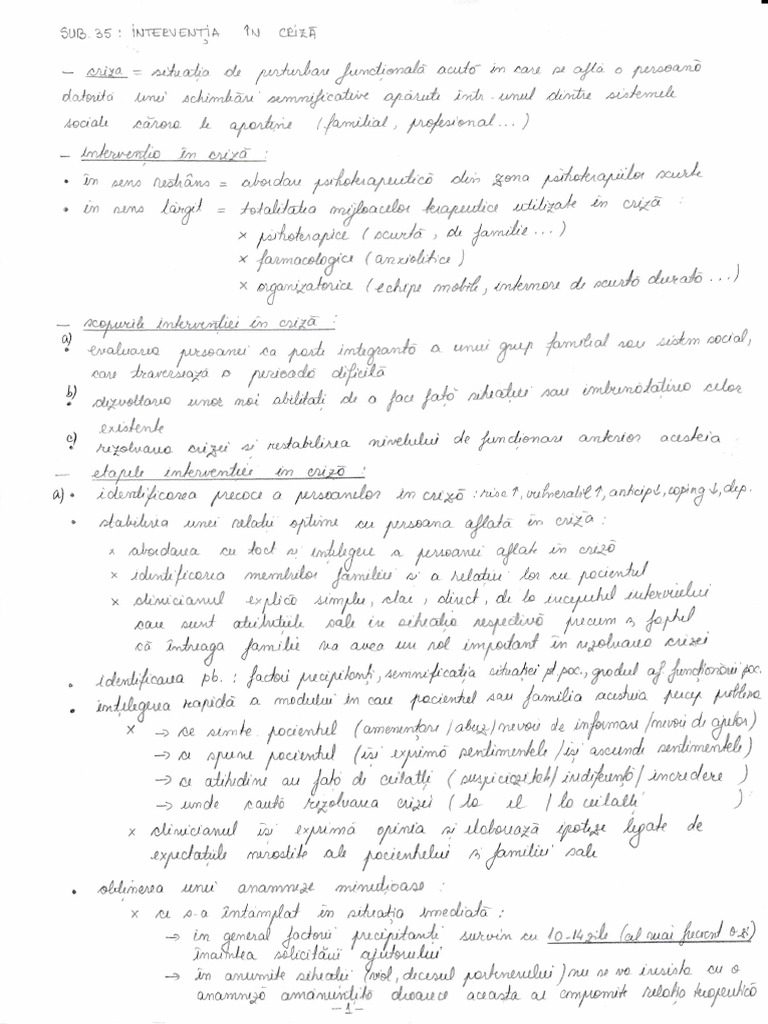 SUB. 35: INTERVENŢIA ÎN CRIZĂ
– criza = situaţia de perturbare funcţională acută în care se află o persoană
datorită unei schimbări semnificative apărute într-unul dintre sistemele
sociale cărora le aparţine (familial, profesional...)
– intervenţia în criză :
• în sens restrâns = abordare psihoterapeutică din zona psihoterapiilor scurte
• în sens lărgit = totalitatea mijloacelor terapeutice utilizate în criză :
× psihoterapice (scurtă, de familie...)
× farmacologice (anxiolitice)
× organizatorice (echipe mobile, internare de scurtă durată ...)
– scopurile intervenţiei în criză :
a) • evaluarea persoanei ca parte integrantă a unui grup familial sau sistem social,
care traversează o perioadă dificilă
b) • dezvoltarea unor noi abilităţi de a face faţă situaţiei sau îmbunătăţirea celor
existente
c) • rezolvarea crizei şi restabilirea nivelului de funcţionare anterior acesteia
– etapele intervenţiei în criză :
a) • identificarea precoce a persoanelor în criză : risc↑, vulnerabil↑, anticip↓, coping↓, dep.
• stabilirea unei relaţii optime cu persoana aflată în criză :
× abordarea cu tact şi înţelegere a persoanei aflate în criză
× identificarea membrilor familiei şi a relaţiei lor cu pacientul
× clinicianul explică simplu, clar, direct, de la începutul interviului
care sunt atribuţiile sale în situaţia respectivă precum şi faptul
că întreaga familie va avea un rol important în rezolvarea crizei
• identificarea pb. : factorii precipitanţi, semnificaţia situaţiei pt. pac., gradul af funcţionării pac.
• înţelegerea rapidă a modului în care pacientul sau familia acestuia percep problema
× → ce simte pacientul (ameninţare / abuz / nevoii de informare / nevoii de ajutor)
→ ce spune pacientul (îşi exprimă sentimentele / îşi ascunde sentimentele)
→ ce atitudine au faţă de ceilalţi (suspiciozitate / indiferenţă / încredere )
→ unde caută rezolvarea crizei (la el / la ceilalţi )
× clinicianul îşi exprimă opinia şi elaborează ipoteze legate de
expectaţiile nerostite ale pacientului şi familiei sale
• obţinerea unei anamneze minuţioase :
× ce s-a întâmplat în situaţia imediată :
→ în general factorii precipitanţi survin cu 10-14 zile (cel mai frecvent
înaintea solicitării ajutorului
→ în anumite situaţii (viol, decesul partenerului) nu se va insista cu o
anamneză amănunţită deoarece aceasta ar compromite relaţia terapeutică
– 1 –